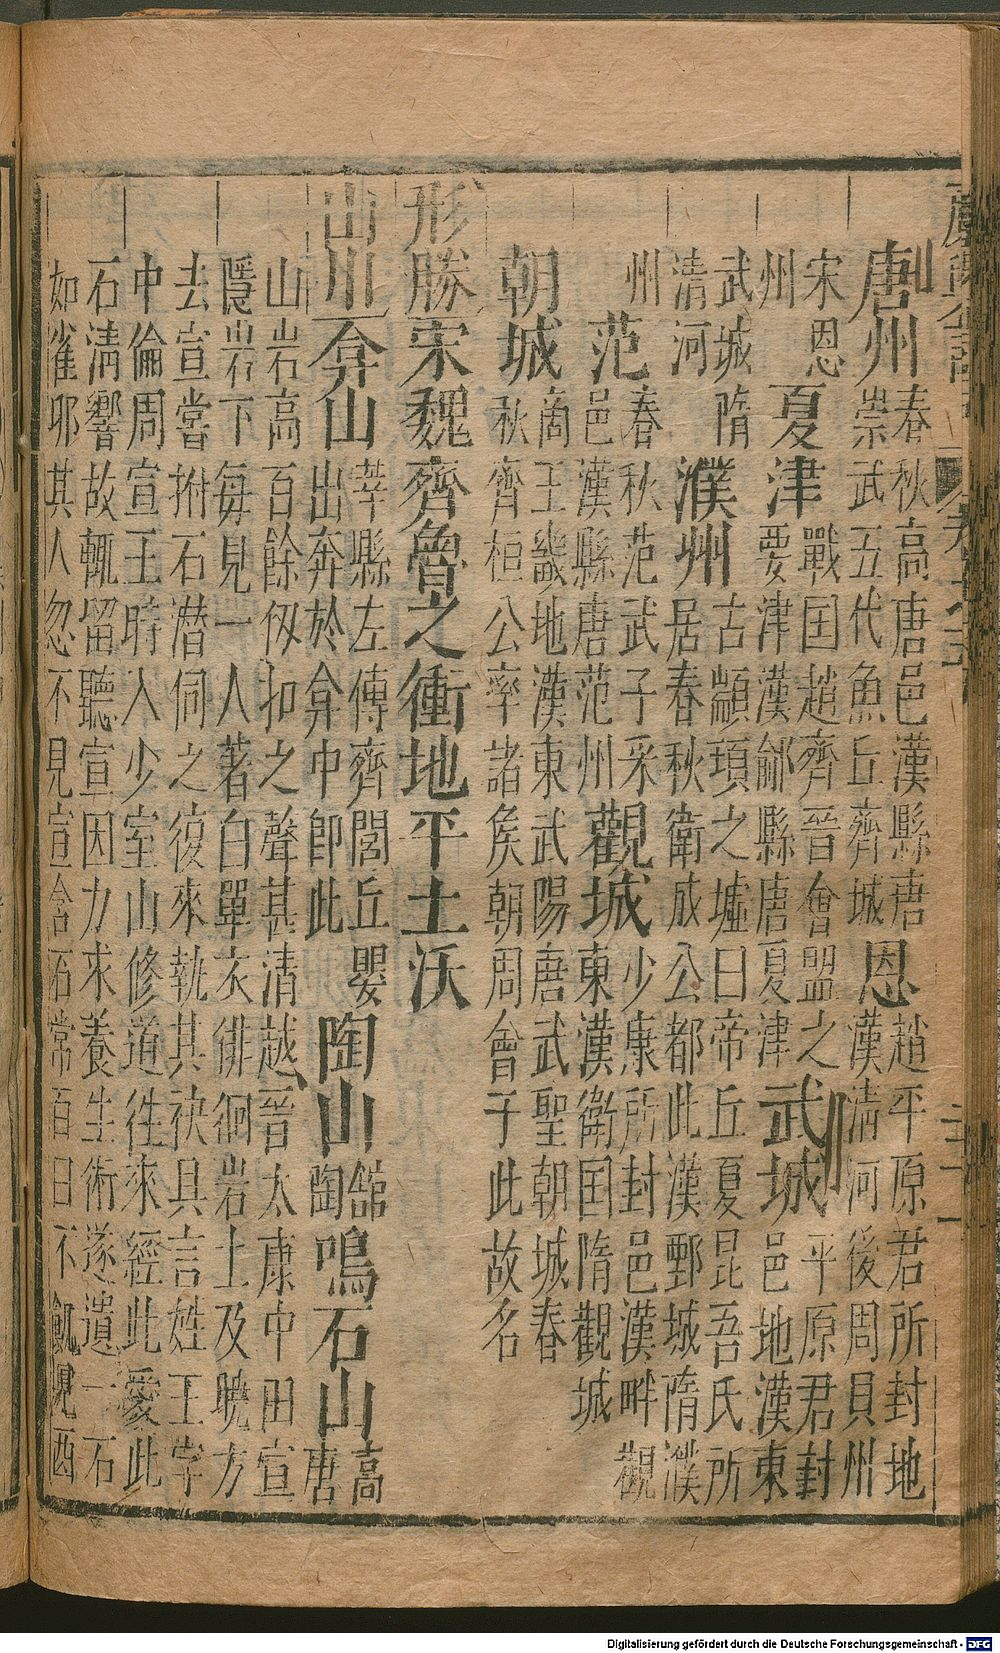 唐州 春秋高唐邑漢縣唐
崇武五代魚丘齊城 恩 趙平原君所封地
漢清河後周貝州
宋恩
州 夏津 戰国趙齊晉會盟之
要津漢鄃縣唐夏津 武城 平原君封
邑地漢東
武城隋
清河 濮州 古顓頊之墟曰帝丘夏昆吾氏所
居春秋衛成公都此漢鄄城隋濮
州 范 春秋范武子采
邑漢縣唐范州 觀城 少康所封邑漢畔觀
東漢衛国隋觀城
朝城 商王畿地漢東武陽唐武聖朝城春
秋齊桓公率諸侯朝周會于此故名
形勝 宋魏齊魯之衝地平土沃
山川 弇山 莘縣左傳齊閭丘嬰
出奔於弇中即此 陶山 館
陶 鳴石山 高
唐
山岩高百餘仭扣之聲甚清越晉太康中田宣
隱岩下每見一人著白單衣徘徊岩上及曉方
去宣嘗拊石潜伺之復來執其袂具言姓王字
中倫周宣王時入少室山修道往來經此愛此
石清響故輒留聽宣因力求養生術遂遺一石
如雀卵其人忽不見宣含石常百日不飢覌酉
Digitalisierung gefördert durch die Deutsche Forschungsgemeinschaft - DFG